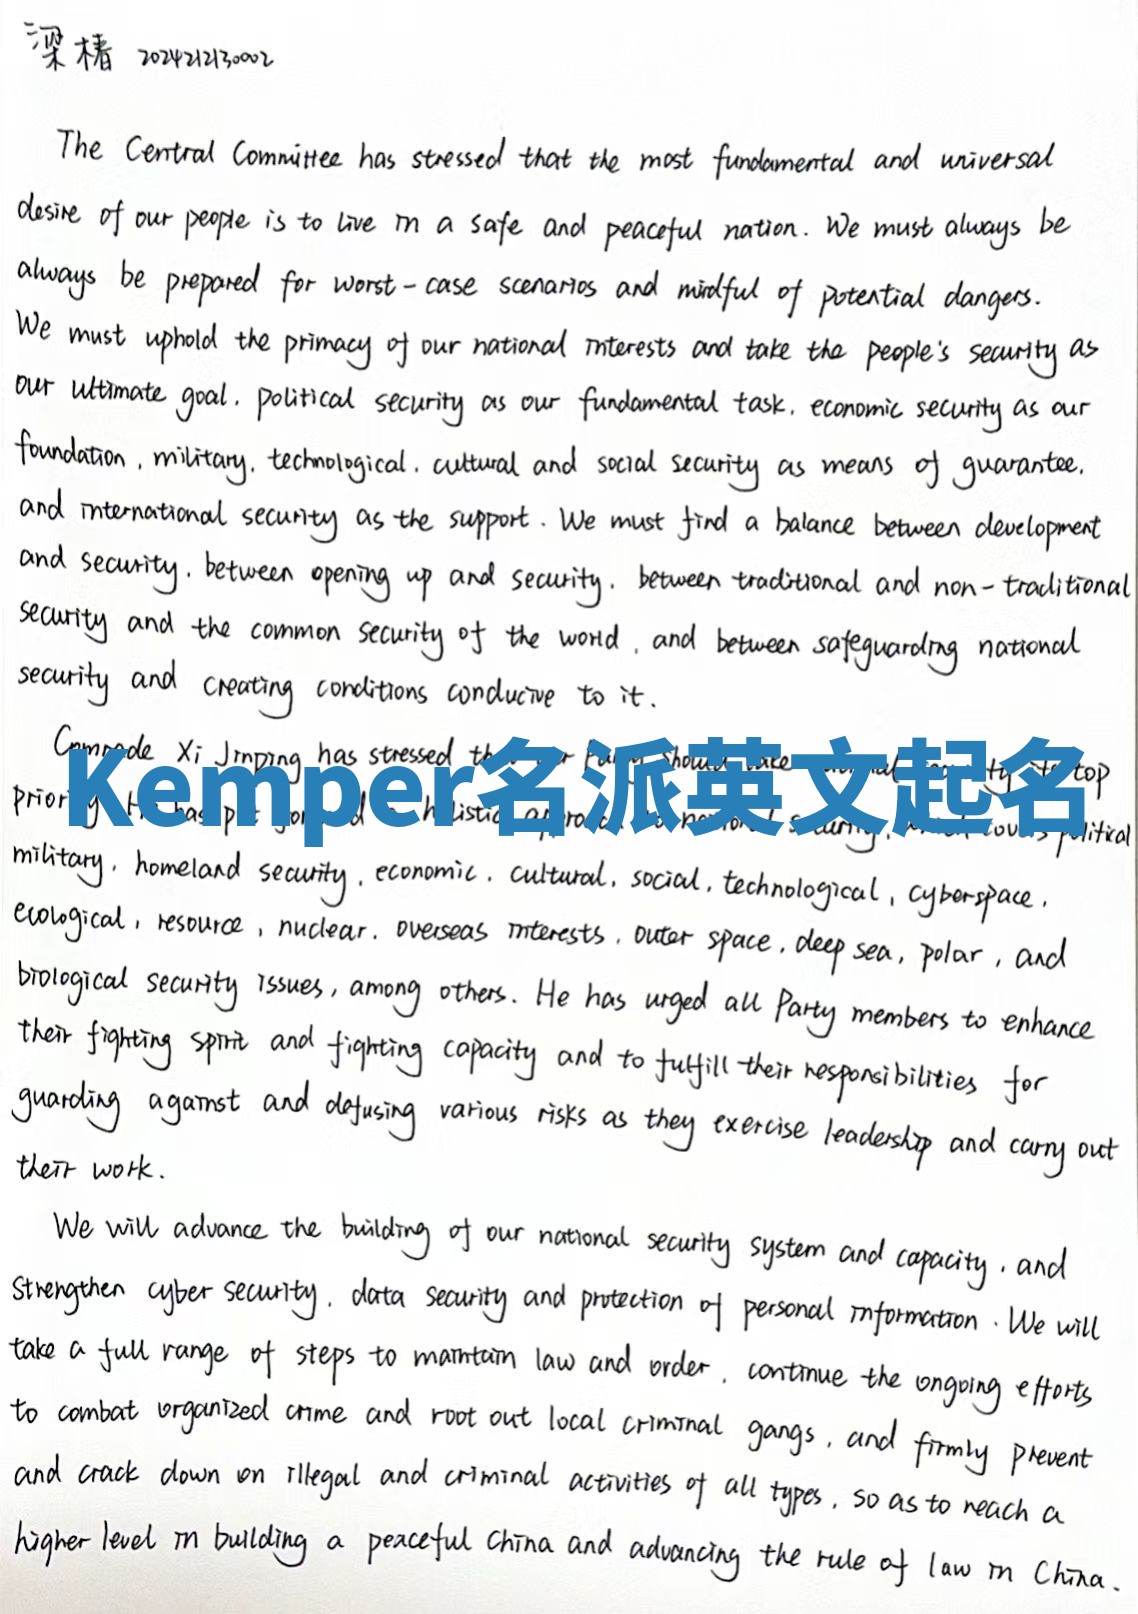 梁椿 2024212130002
The Central Committee has stressed that the most fundamental and universal
desire of our people is to live in a safe and peaceful nation. We must always be
always be prepared for worst-case scenarios and mindful of potential dangers.
We must uphold the primacy of our national interests and take the people's security as
our ultimate goal, political security as our fundamental task, economic security as our
foundation, military, technological, cultural and social security as means of guarantee,
and international security as the support. We must find a balance between development
and security, between opening up and security, between traditional and non-traditional
security and the common security of the world, and between safeguarding national
security and creating conditions conducive to it.
Comrade Xi Jinping has stressed top
Kemper名派英文起名
political
military, homeland security, economic, cultural, social, technological, cyberspace,
ecological, resource, nuclear, overseas interests, outer space, deep sea, polar, and
biological security issues, among others. He has urged all Party members to enhance
their fighting spirit and fighting capacity and to fulfill their responsibilities for
guarding against and defusing various risks as they exercise leadership and carry out
their work.
We will advance the building of our national security system and capacity, and
strengthen cyber security, data security and protection of personal information. We will
take a full range of steps to maintain law and order, continue the ongoing efforts
to combat organized crime and root out local criminal gangs, and firmly prevent
and crack down on illegal and criminal activities of all types, so as to reach a
higher level in building a peaceful China and advancing the rule of law in China.